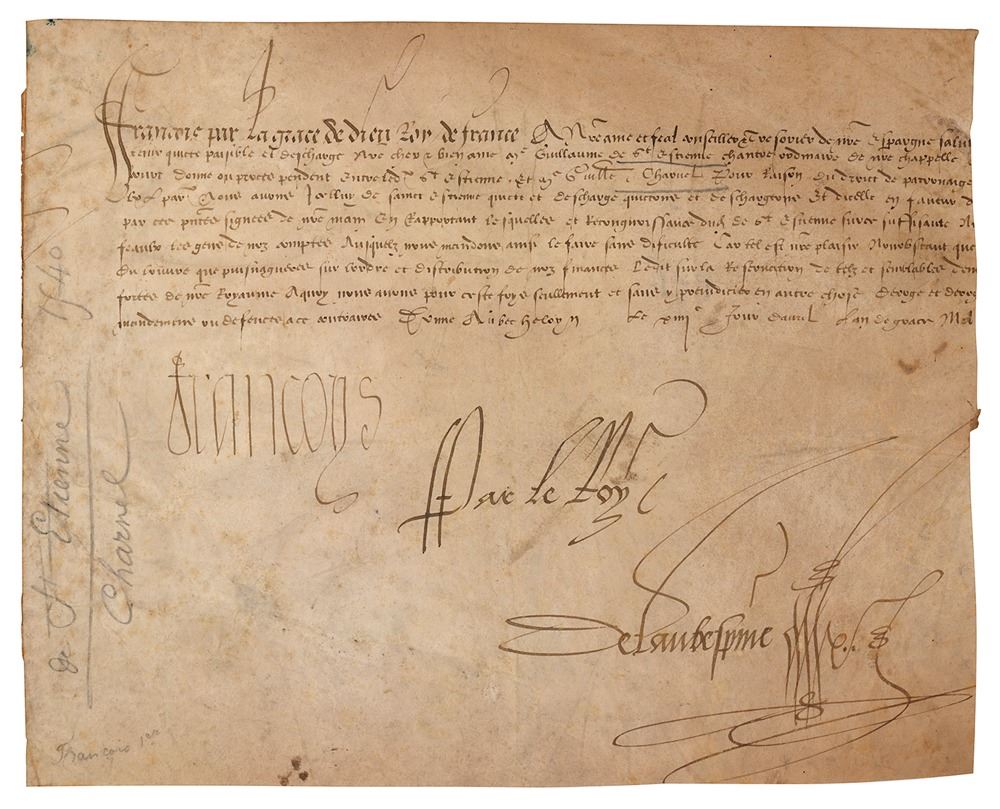 Francois par la grace de dieu Roy de france A Nre ame et feal conseiller et tresorier de nre Espargne salut
tenir quicte paisible et deschargé nre cher & bien ame me Guillaume de St Estienne chantre ordinaire de nre chappelle
donne ou proces pendent entre led St Estienne Et me Guille Charuel Pour Raison du droict de patronaige
Nous auons Icelluy de sainct Estienne quicte et deschargé quictons et deschargeons Et dicelle en faueur
par ces pntes signees de nre main En Rapportant lesquelles et Recongnoissance dud de St Estienne sur ce suffisante
feaulx les gens de noz comptes Ausquelz nous mandons ainsi le faire sans difficulté Car tel est nre plaisir Nonobstant que
du louure que puis nagueres sur lordre et distribution de noz finances Ledit sur la Reseruation de telz et semblables
de nre Royaume A quoy nous auons pour ceste foys seullement et sans y preiudicier en autre chose derogé et
mandemens ou defences a ce contraires Donne A Le xiiiie Jour dauril Lan de grace
Francoys
Par le Roy
Delaubespine
de St Etienne 1540
Charuel
Francois 1er